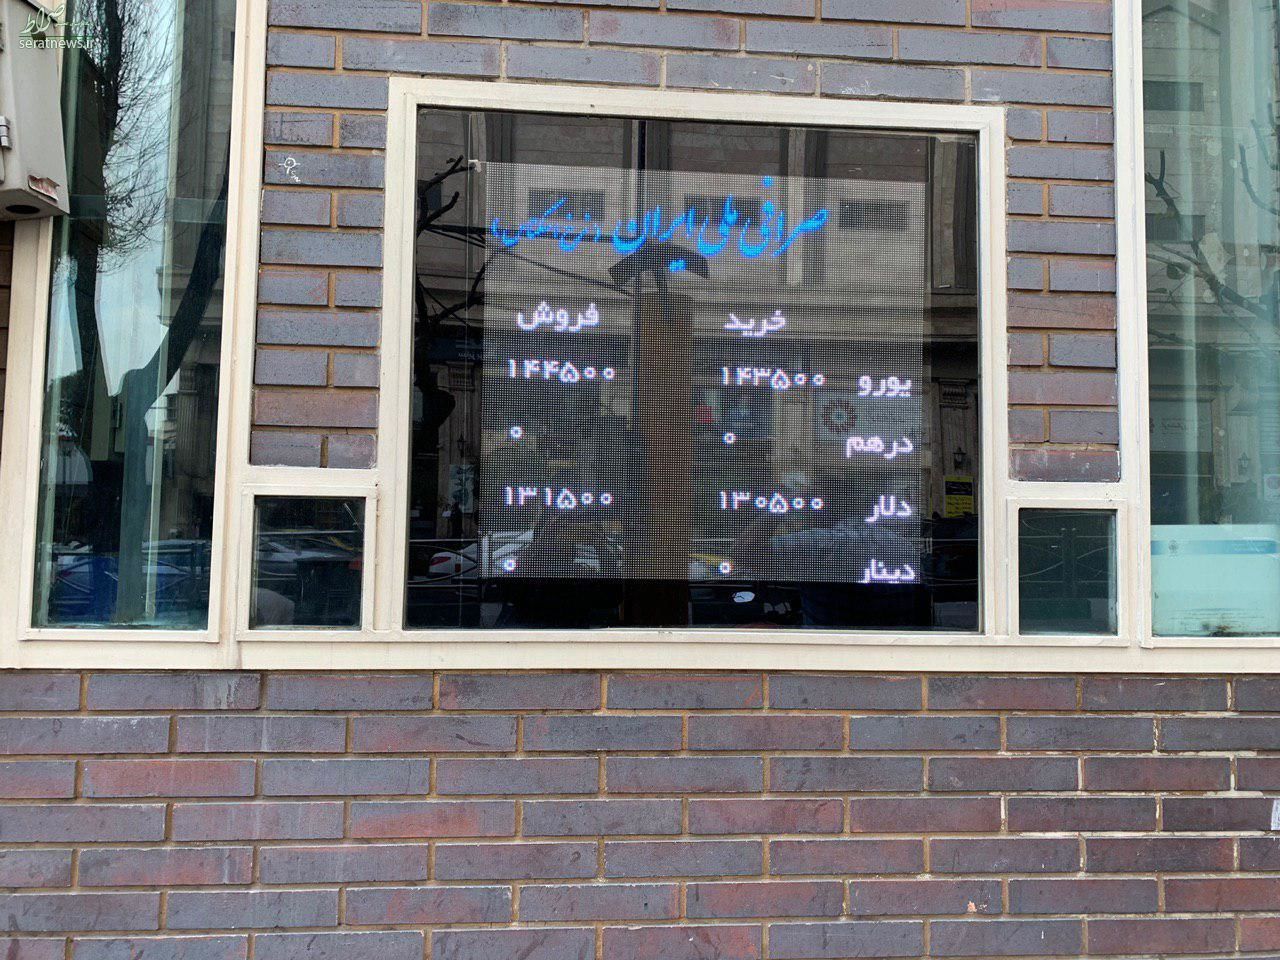 صراط
seratnews.ir
صرافی ملی ایران (نرخ اسکناس)
خرید فروش
یورو ۱۴۳۵۰۰ ۱۴۴۵۰۰
درهم ۰ ۰
دلار ۱۳۰۵۰۰ ۱۳۱۵۰۰
دینار ۰ ۰